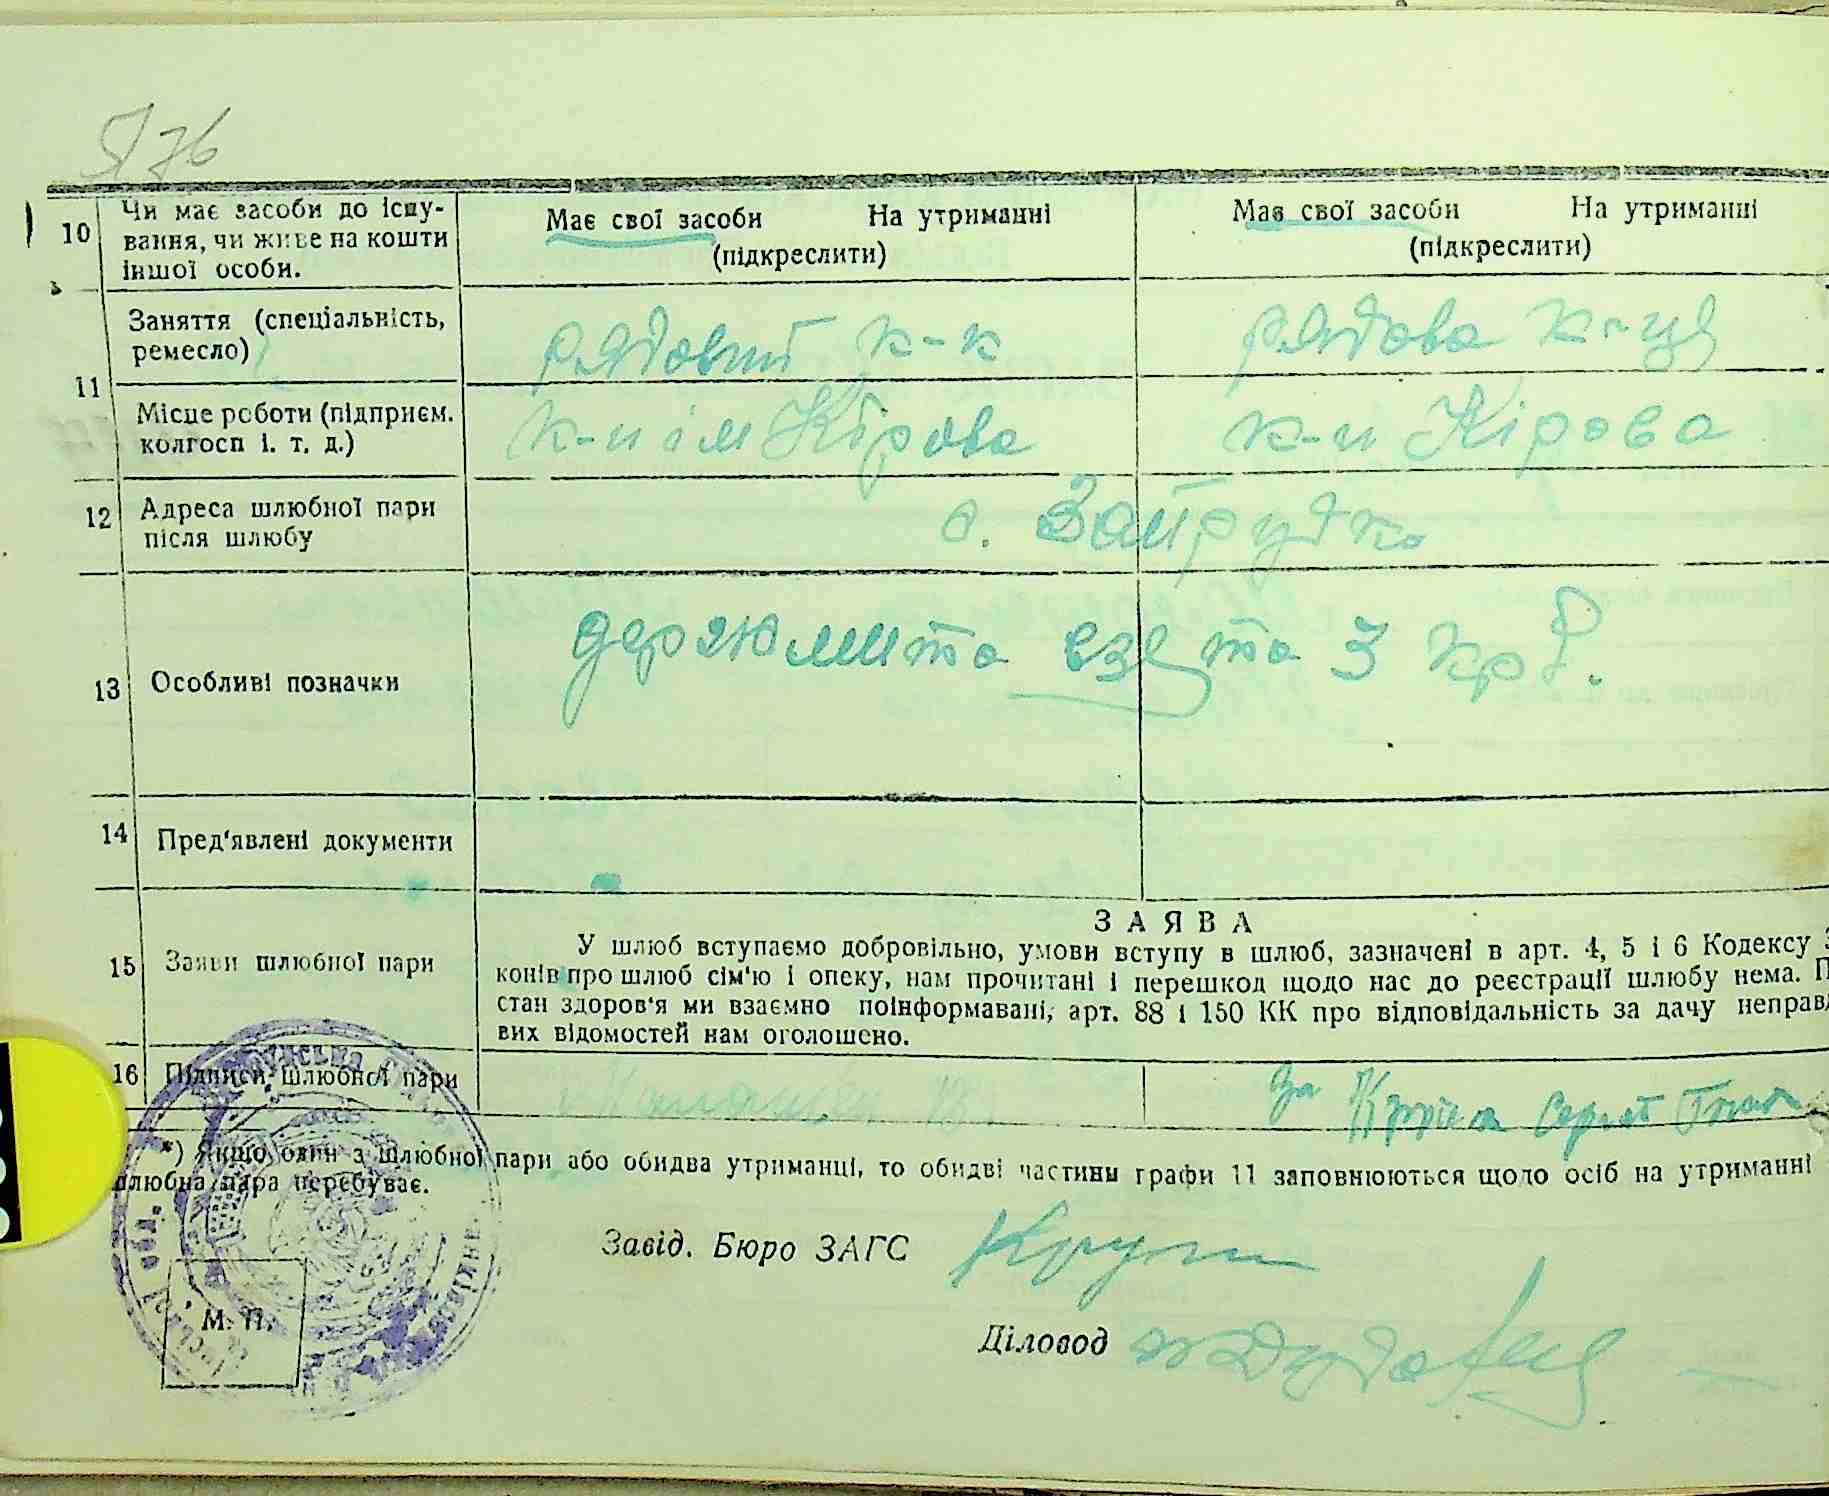 576
10 Чи має засоби до існу-
вання, чи живе на кошти
іншої особи.
Має свої засоби На утриманні
(підкреслити)
Має свої засоби На утриманні
(підкреслити)
11 Заняття (спеціальність,
ремесло)
рядовий к-к
рядова к-ця
Місце роботи (підприєм.
колгосп і. т. д.)
к-п ім Кірова
к-п Кірова
12 Адреса шлюбної пари
після шлюбу
с. Зайрудка
13 Особливі позначки
держмита взято 3 крб.
14 Пред'явлені документи
15 Заяви шлюбної пари
ЗАЯВА
У шлюб вступаємо добровільно, умови вступу в шлюб, зазначені в арт. 4, 5 і 6 Кодексу З
конів про шлюб сім'ю і опеку, нам прочитані і перешкод щодо нас до реєстрації шлюбу нема. П
стан здоров'я ми взаємно поінформавані, арт. 88 і 150 КК про відповідальність за дачу неправд
вих відомостей нам оголошено.
16 Підписи шлюбної пари
За
*) Якщо один з шлюбної пари або обидва утриманці, то обидві частини графи 11 заповнюються щодо осіб на утриманні
шлюбна пара перебуває.
Завід. Бюро ЗАГС
Діловод
М. П.